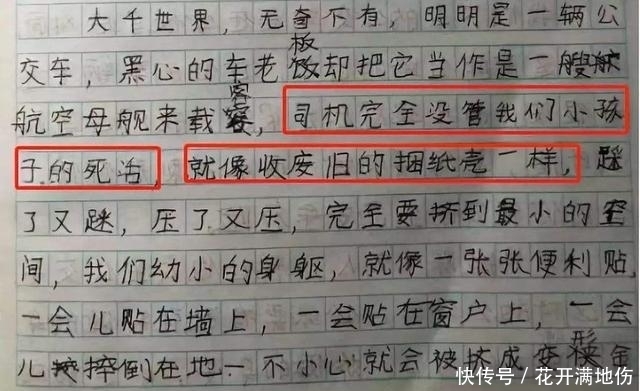 大千世界，无奇不有，明明是一辆公
交车，黑心的车老板却把它当作是一艘
航空母舰来载客，司机完全没管我们小孩
子的死活，就像收废旧的捆纸壳一样，踩
了又踩，压了又压，完全要挤到最小的空
间，我们幼小的身躯，就像一张张便利贴
一会儿贴在墙上，一会贴在窗户上，一会
儿摔倒在地一不小心就会被挤成变形金
快传号／花开满地伤